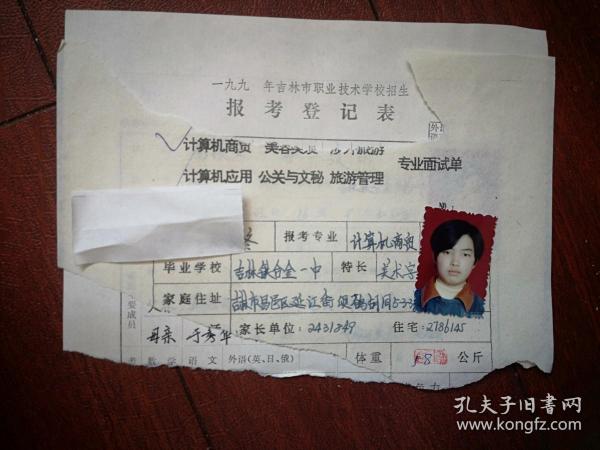 一九九 年吉林市职业技术学校招生
报考登记表
计算机商贸 美容美发 涉外旅游
专业面试单
计算机应用 公关与文秘 旅游管理
冬 报考专业 计算机商贸
毕业学校 吉林铁合金一中 特长 美术字
家庭住址 吉林市昌邑区延江街
要成员
母亲 于秀华 家长单位:2431349 住宅:2786145
考 数学 语文 外语(英、日、俄) 体重 公斤
孔夫子旧书网
www.kongfz.com